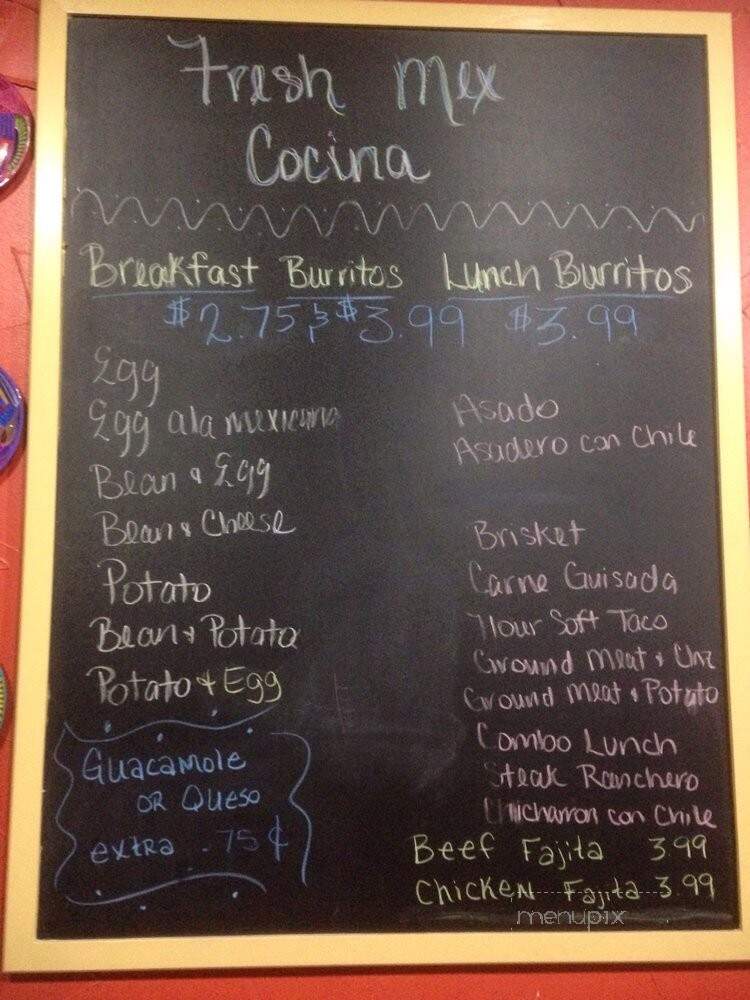 Fresh Mex
Cocina
Breakfast Burritos
$2.75 & $3.99
Egg
Egg ala mexicana
Bean & Egg
Bean & Cheese
Potato
Bean & Potato
Potato & Egg
Guacamole
OR Queso
extra .75¢
Lunch Burritos
$3.99
Asado
Asadero con Chile
Brisket
Carne Guisada
Flour Soft Taco
Ground Meat &
Ground Meat & Potato
Combo Lunch
Steak Ranchero
Chicharron con Chile
Beef Fajita 3.99
Chicken Fajita 3.99
menupix